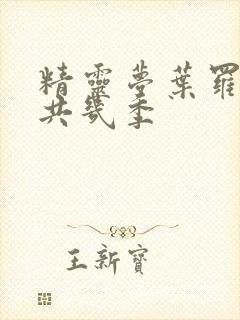 精靈夢葉羅
共幾季
王新寶